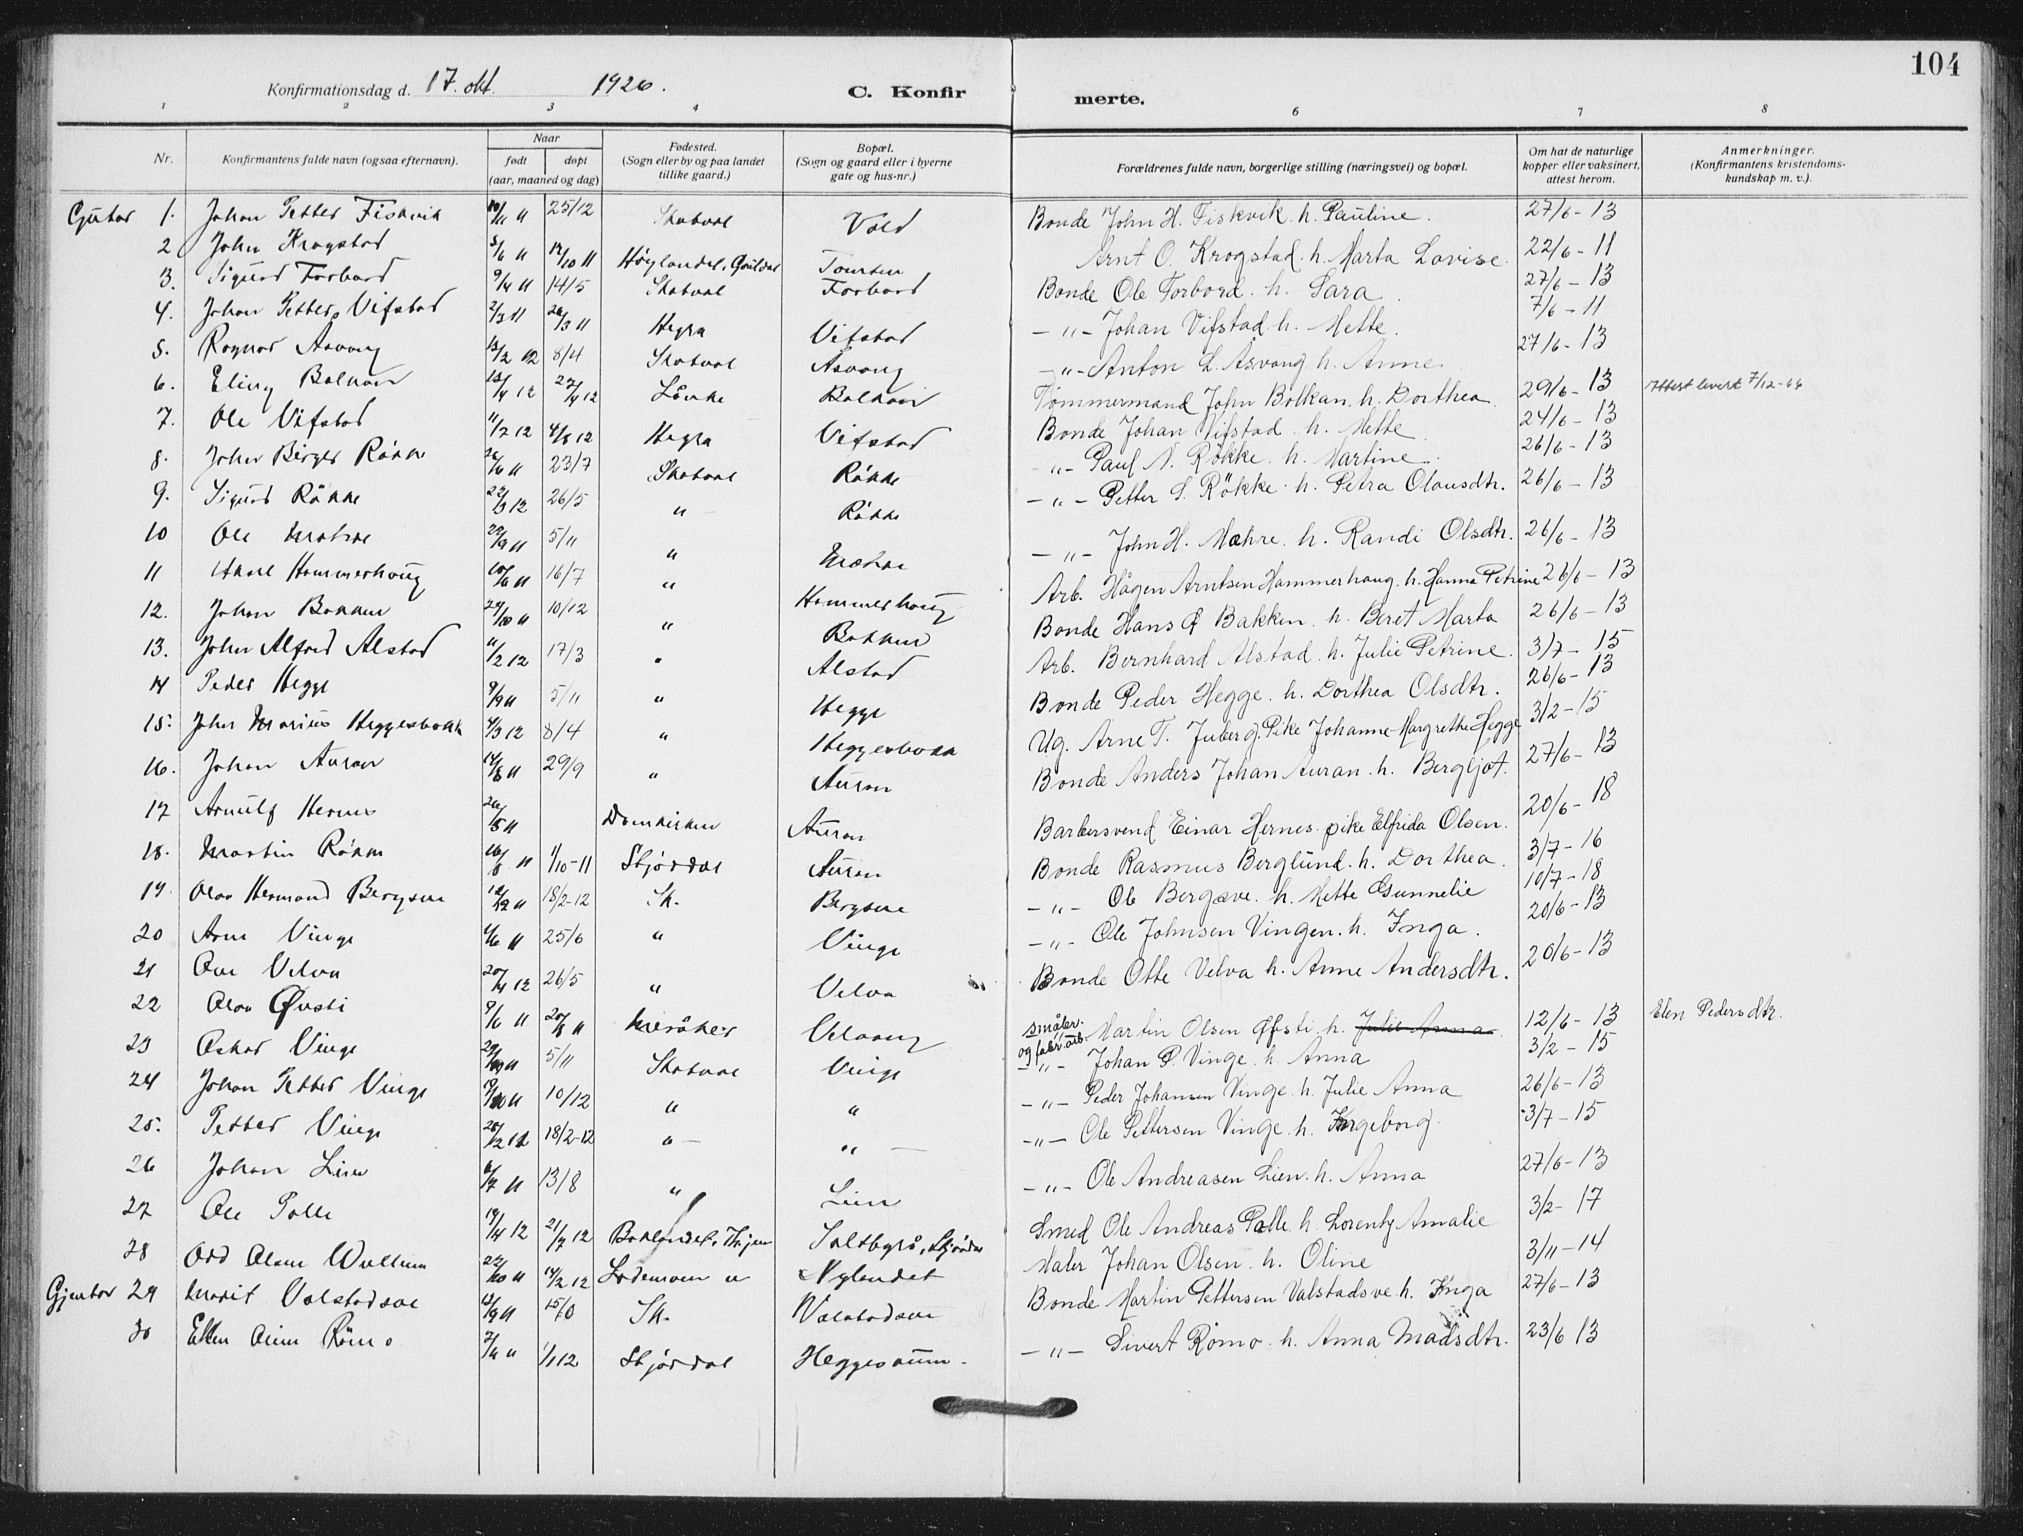 104
Konfirmationsdag d. 17. okt. 1926. C. Konfirmerte.
1 2 3 4 5 6 7 8
Nr. Konfirmantens fulde navn (ogsaa efternavn). Naar født døpt (aar, maaned og dag) Fødested. (Sogn eller by og paa landet tillike gaard.) Bopæl. (Sogn og gaard eller i byerne gate og hus-nr.) Forældrenes fulde navn, borgerlige stilling (næringsvei) og bopæl. Om hat de naturlige kopper eller vaksinert, attest herom. Anmerkninger. (Konfirmantens kristendoms-kundskap m. v.).
Gutar 1. Johan Petter Fiskvik 25/12 Skatval Vold Bonde John H. Fiskvik. h. Pauline. 27/6-13
2 John Krogstad 5/6 11 12/10 11 Høylandet, Tourten Arnt O. Krogstad. h. Marta Lovise. 22/6-11
3. Sigurd Forbord 9/4 11 14/5 Skatval Forbord Bonde Ole Forbord. h. Sara. 27/6-13
4. Johan Petter Vifstad 2/3 11 26/3 11 Hegra Vifstad -"- Johan Vifstad. h. Mette. 7/6-11
5. Ragnar Åsvang 13/2 12 8/4 Skatval Åsvang -"- Anton L. Åsvang h. Anne. 27/6-13
6. Eling Balkan 15/4 12 27/4 12 Lånke Balkan Tømmermand John Bolkan. h. Dorthea. 29/6-13 Attest levert 7/12-66
7. Ole Vifstad 11/7 12 4/8 12 Hegra Vifstad Bonde Johan Vifstad. h. Mette. 24/6-13
8. John Birger Røkke 26/6 11 23/7 Skatval Røkke -"- Paul N. Røkke. h. Martine. 26/6-13
9. Sigurd Røkke 22/3 12 26/5 " Røkke -"- Petter S. Røkke. h. Petra Olausdtr. 26/6-13
10 Ole Mæhre 29/9 11 5/11 " Mæhre -"- John H. Mæhre. h. Randi Olsdtr. 26/6-13
11 Hammerhaug 10/6 11 16/7 " Hammerhaug Arb. Hågen Arntsen Hammerhaug. h. Hanna Petrine 26/6-13
12. Johan Bakken 24/10 11 10/12 " Bakken Bonde Hans Bakken. h. Beret Marta 26/6-13
13. John Alfred Alstad 11/2 12 17/3 " Alstad Arb. Bernhard Alstad. h. Julie Petrine. 3/7-15
14 Peder Hegge 9/9 11 5/11 " Hegge Bonde Peder Hegge. h. Dorthea Olsdtr. 26/6-13
15. John Marius Heggesbakk 4/3 12 8/4 " Heggesbakk Ug. Arne T. Juberg. Pike Johanne Margrethe Hegge 3/2-15
16. Johan Auran 14/8 11 29/9 " Auran Bonde Anders Johan Auran. h. Bergljot. 27/6-13
17 Arnulf Hernes 26/5 11 Domkirken Auran Barbersvend Einar Hernes. pike Elfrida Olsen. 20/6-18
18. Martin Røkke 16/8 11 1/10-11 Stjørdal Auran Bonde Rasmus Berglund. h. Dorthea. 3/7-16
19. Olav Hermand Bergsve 12/12 11 18/2-12 Sk. Bergsve -"- Ole Bergsve. h. Mette Gunnelie 10/7-18
20 Arne Vinge 4/6 11 25/6 " Vinge -"- Ole Johnsen Vingen. h. Inga. 20/6-13
21 Ove Velva 20/4 12 26/5 " Velva Bonde Otte Velva h. Anne Andersdtr. 20/6-13
22 Olav Øvsti 9/6 11 20/8 11 Meråker Velvang småbr. og fabr.arb. Martin Olsen Øfsti. h. Julie Anna. 12/6-13 Elen Pedersdtr.
23 Oskar Vinge 5/11 Skatval Vinge -"- Johan P. Vinge. h. Anna 3/2-15
24 Johan Petter Vinge 10/12 " " -"- Peder Johansen Vinge. h. Julie Anna 26/6-13
25. Petter Vinge 18/2-12 "- "- -"- Ole Pettersen Vinge. h. Ingeborg. 3/7-15
26 Johan Lien 6/7 11 13/8 " Lien -"- Ole Andreasen Lien. h. Anna 27/6-13
27 Ole Palle 19/4 12 21/7 12 Saltbyrå, Stjørdal Smed Ole Andreas Palle. h. Lorentz Amalie 3/2-17
28 Odd Olsen Wullum 14/2 12 Lademoen Nylandet Maler Johan Olsen. h. Oline 3/11-14
Gjentor 29 Marit Valstadsve 13/9 11 Sk. Valstadsve Bonde Martin Pettersen Valstadsve h. Inga 27/6-13
30 Ellen Anne Rømo 1/1 12 Stjørdal Heggesaunn. -"- Sivert Rømo. h. Anna Madsdtr. 23/6 13